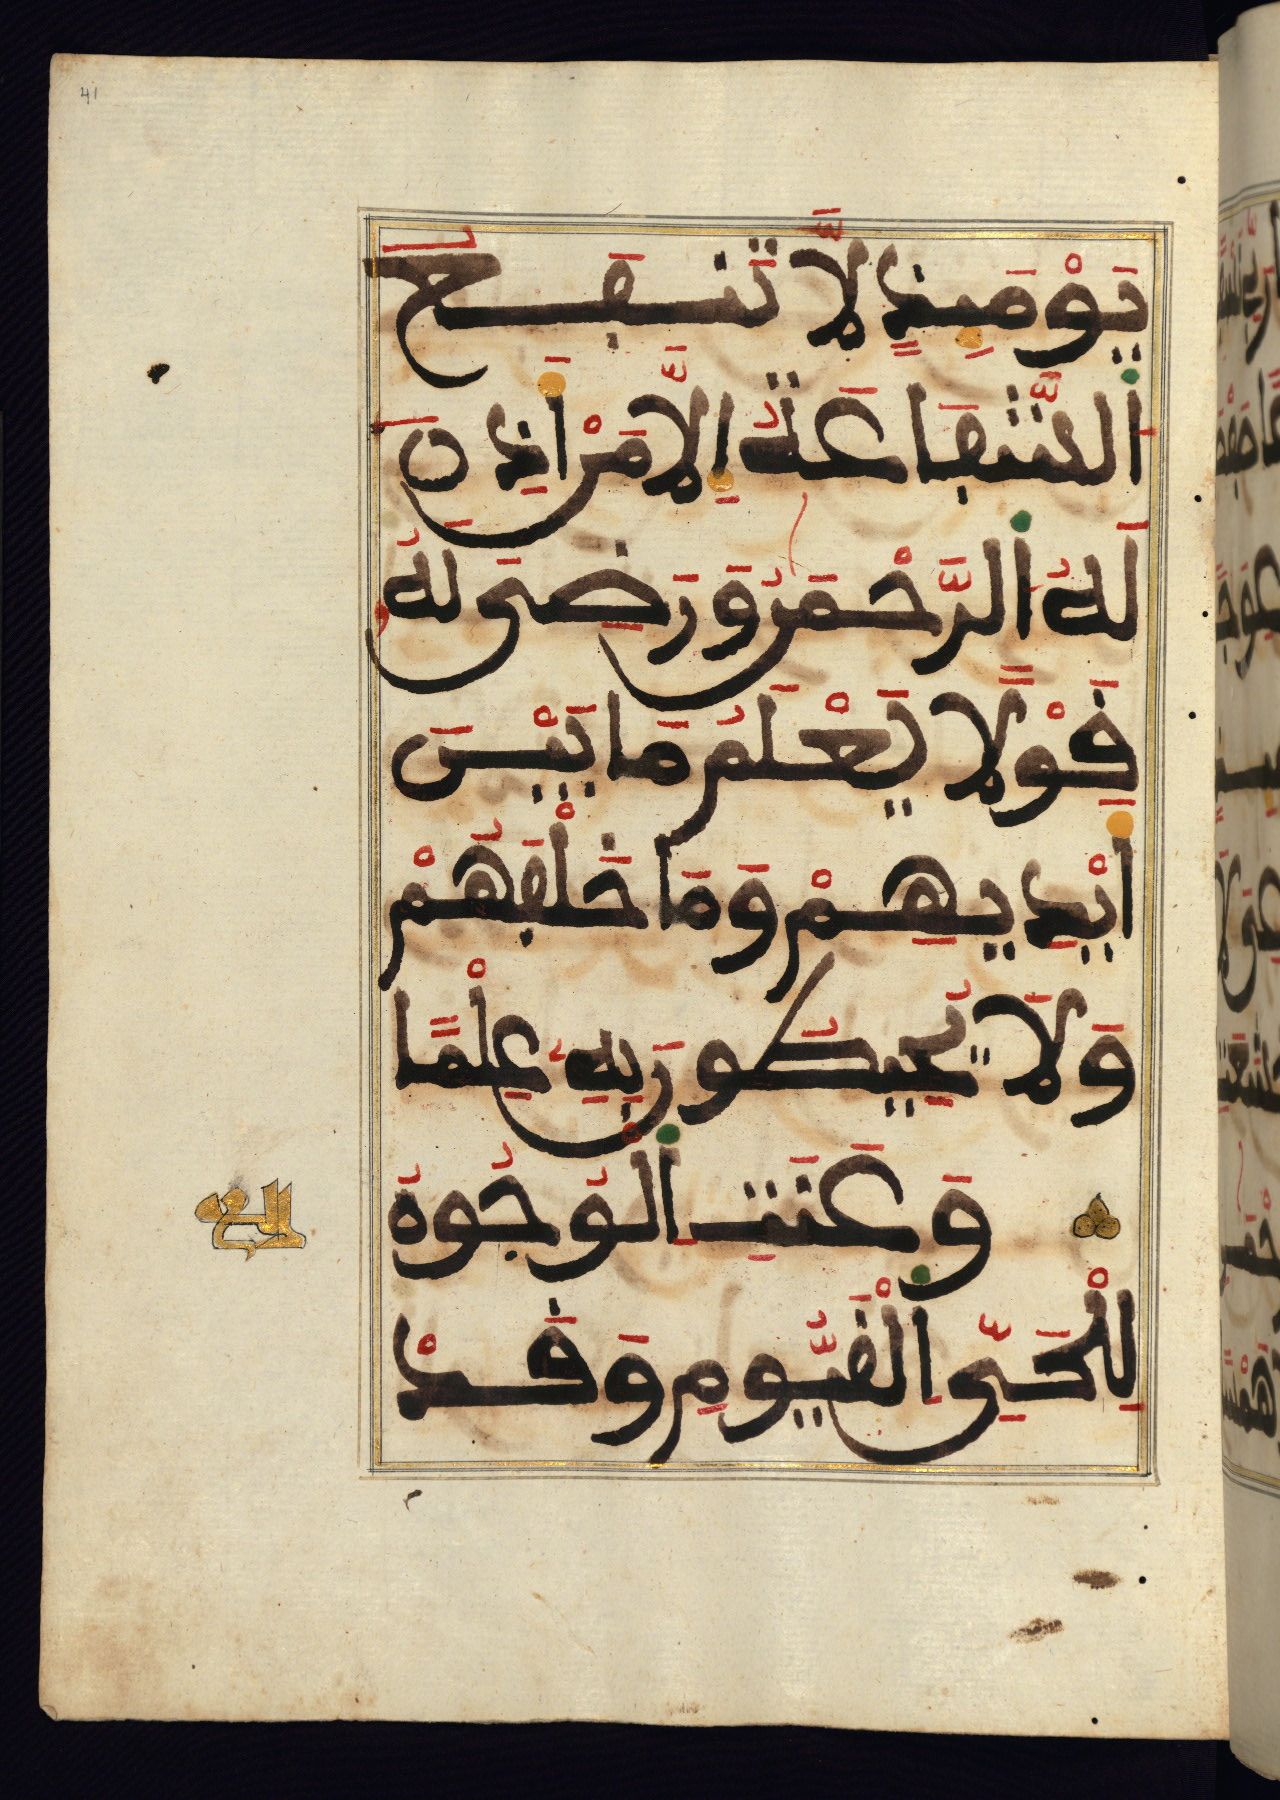 41
يَوْمَئِذٍ لَّا تَنفَعُ
اُلشَّفَاعَةُ إِلَّا مَنْ أَذِنَ
لَهُ اُلرَّحْمَنُ وَرَضِيَ لَهُ
قَوْلًا يَعْلَمُ مَا بَيْنَ
أَيْدِيهِمْ وَمَا خَلْفَهُمْ
وَلَا يُحِيطُونَ بِهِ عِلْمًا
وَعَنَتِ اِلْوُجُوهُ
لِلْحَيِّ اِلْقَيُّومِ وَقَدْ